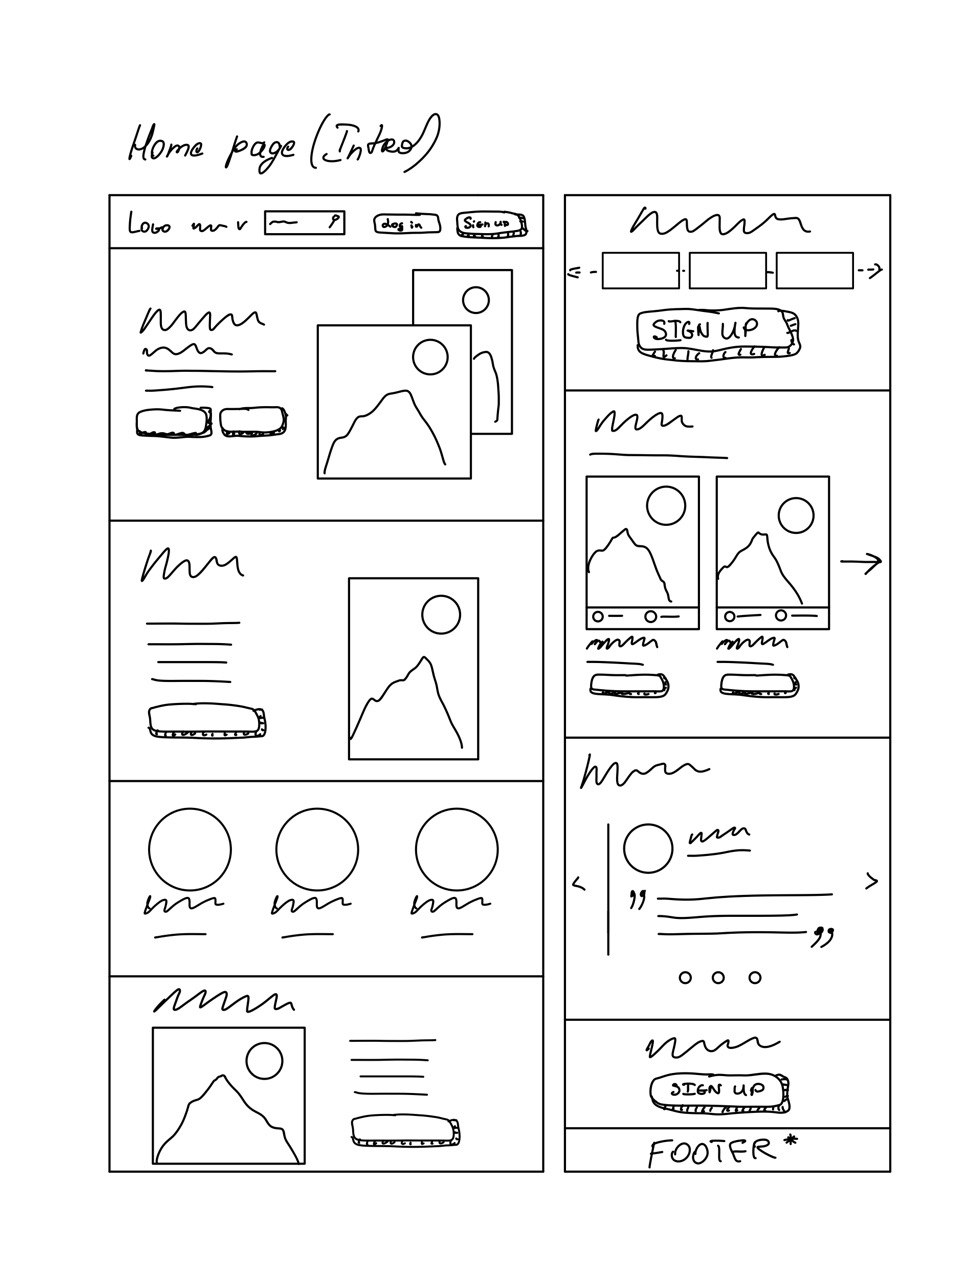 Home page (Intro)
Logo
Log in
Sign up
SIGN UP
SIGN UP
FOOTER*